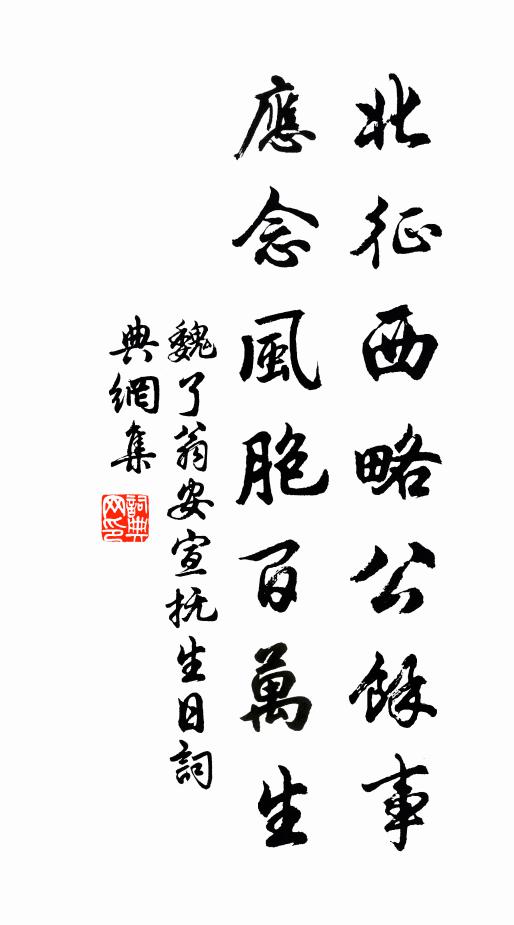 北征西略公餘事
應念風胞百萬生
魏了翁安宣抚生日詞
典網集
詞典網印